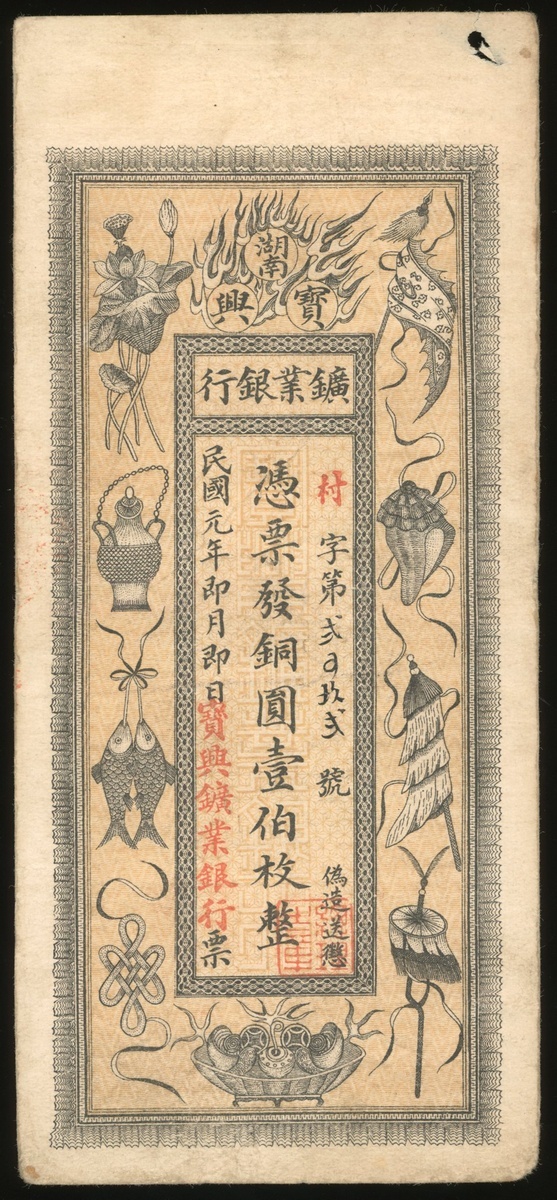 湖南
寶興
鑛業銀行
村字第弍百玖弍號
偽造送懲
憑票發銅圓壹伯枚整
民國元年即月即日寶興鑛業銀行票